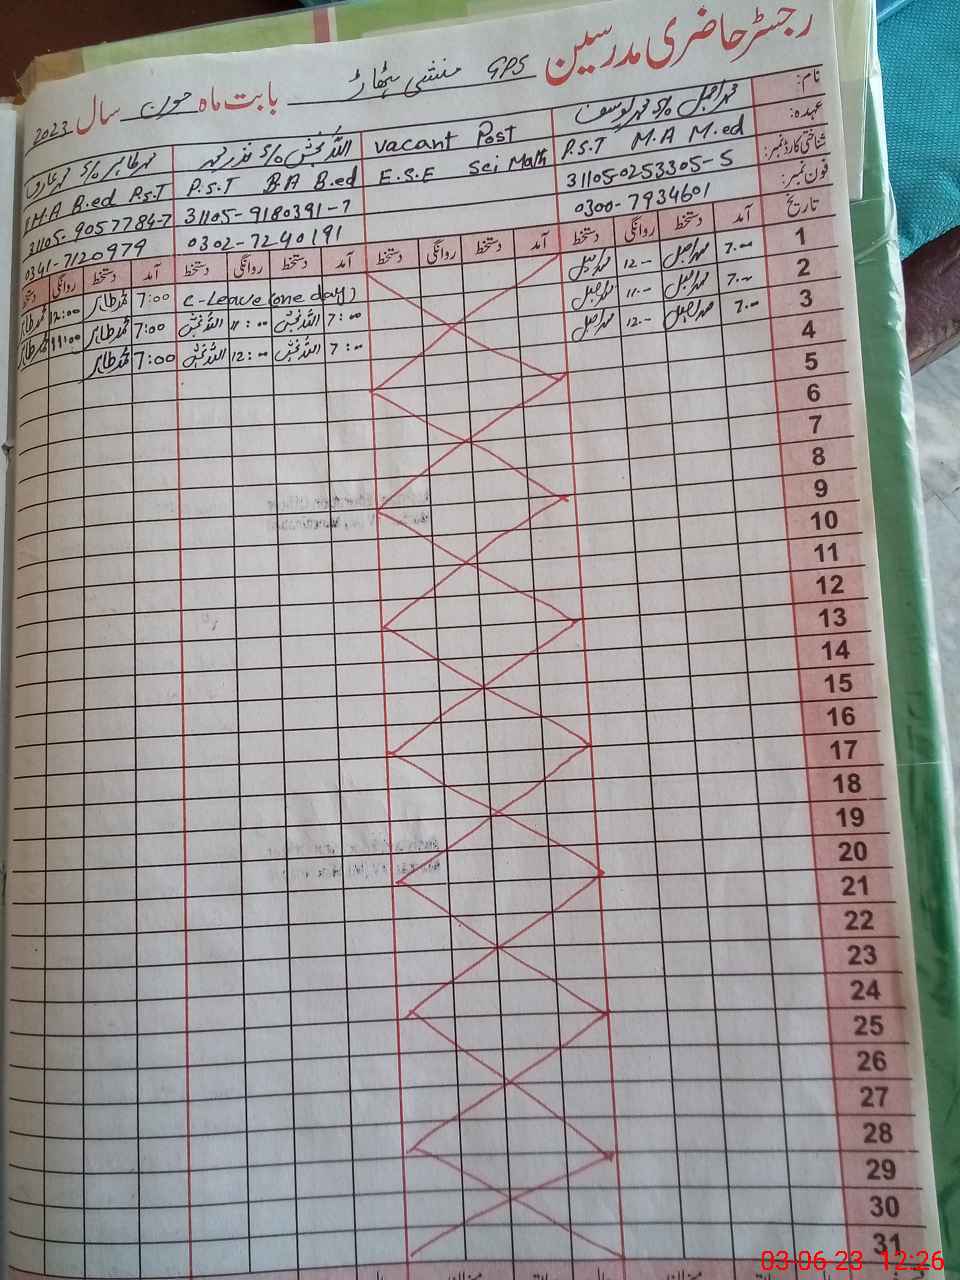 رجسٹر حاضری مدرسین GPS منشی بابت ماہ جون سال 2023
نام:
محمد اجمل s/o محمد یوسف
Vacant Post
اللہ بخش s/o نذر محمد
محمد طاہر s/o محمد عارف
عہدہ:
P.S.T M.A M.ed
E.S.E Sci Math
P.S.T B.A B.ed
M.A B.ed P.S.T
شناختی کارڈ نمبر:
31105-0253305-5
31105-9180391-7
31105-9057784-7
فون نمبر:
0300-7934601
0302-7240191
0341-7120979
تاریخ
آمد دستخط روانگی دستخط
آمد دستخط روانگی دستخط
آمد دستخط روانگی دستخط
آمد دستخط روانگی دستخط
1 7.00 محمد اجمل 12.00 محمد اجمل C-Leave (one day) 7:00 محمد طاہر 12:00 محمد طاہر
2 7.00 محمد اجمل 11.00 محمد اجمل 7:00 اللہ بخش 11:00 اللہ بخش 7:00 محمد طاہر 11:00 محمد طاہر
3 7.00 محمد اجمل 12.00 محمد اجمل 7:00 اللہ بخش 12:00 اللہ بخش 7:00 محمد طاہر
4
5
6
7
8
9
10
11
12
13
14
15
16
17
18
19
20
21
22
23
24
25
26
27
28
29
30
31
03-06-23 12:26